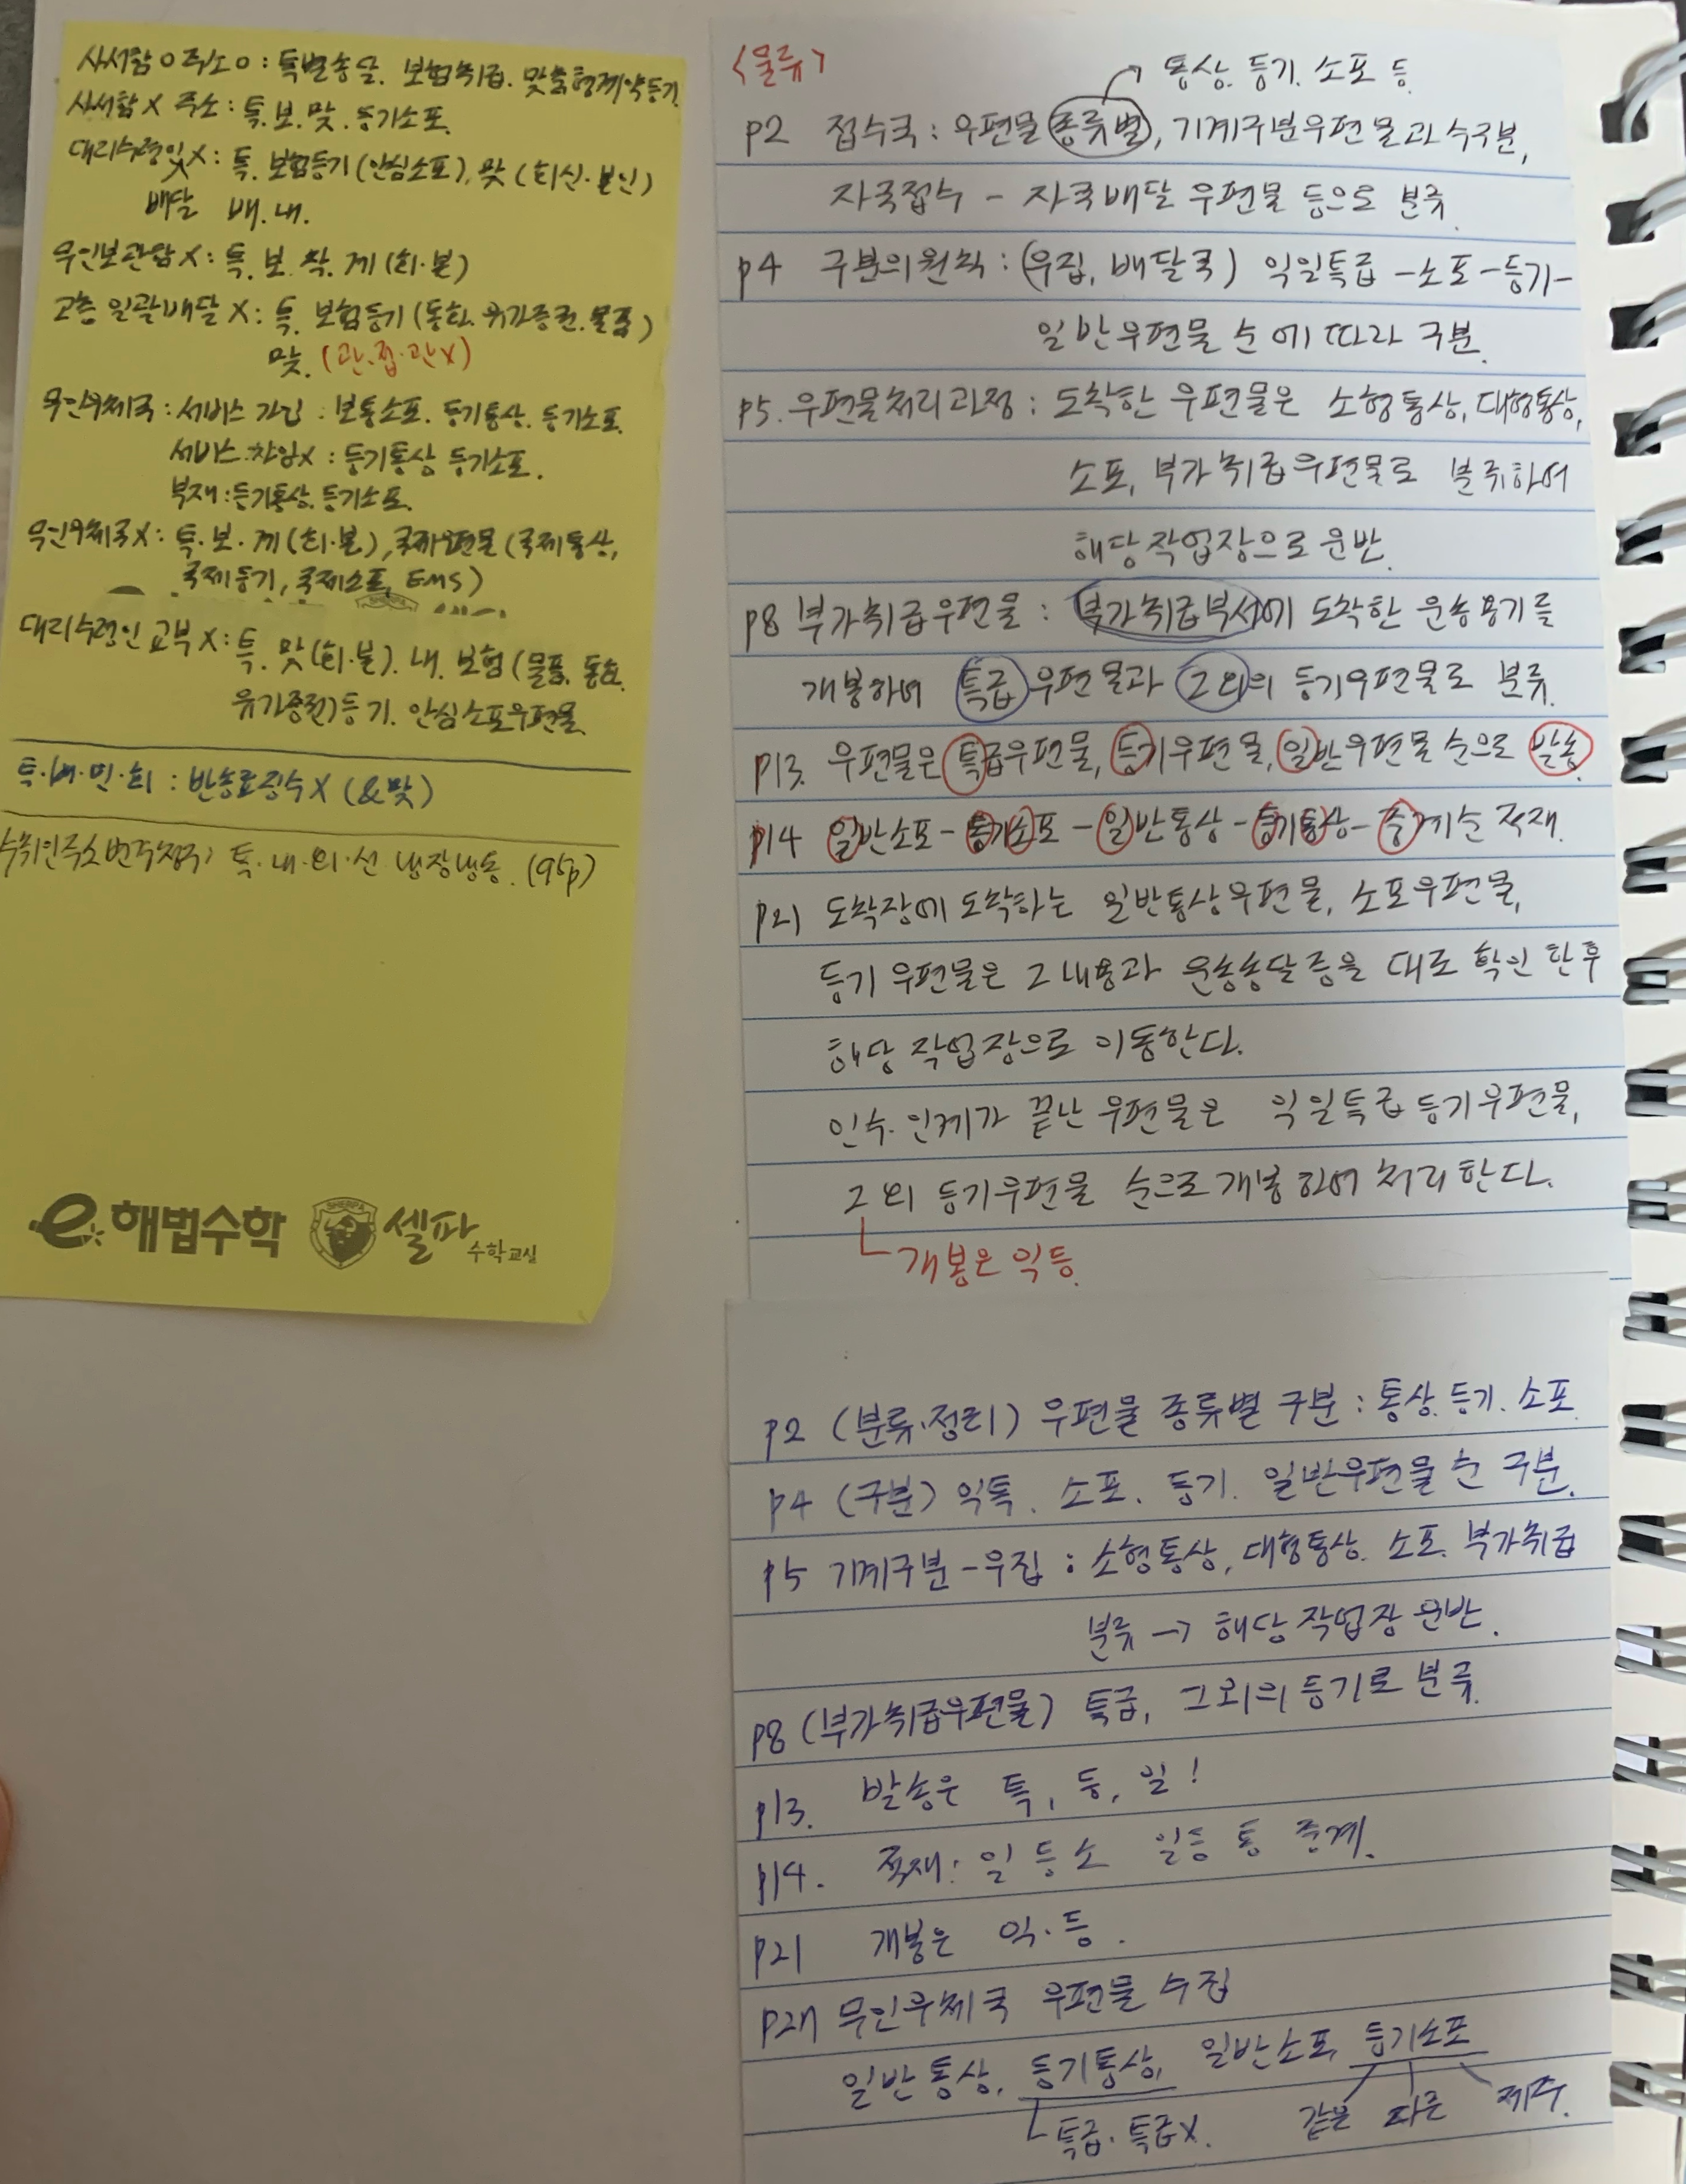 사서함 O 주소 O : 특별송달. 보험취급. 맞춤형계약등기
사서함 X 주소 : 특. 보. 맞. 등기소포.
대리수령인X : 특. 보험등기 (안심소포), 맞 (회신·본인)
배달 배. 내.
무인보관함 X : 특. 보. 착. 계 (회·본)
고층 일괄배달 X : 특. 보험등기 (통화. 유가증권. 물품)
맞. (관.접.관X)
무인우체국 : 서비스 가입 : 보통소포. 등기통상. 등기소포.
서비스 X : 등기통상 등기소포.
부재 : 등기통상. 등기소포.
무인우체국X : 특·보·계(회·본), 국제우편물 (국제통상,
국제등기, 국제소포, EMS)
대리수령인 교부 X : 특. 맞(회·본). 내. 보험 (물품. 통화.
유가증권)등기. 안심소포우편물.
특·배·민·회 : 반송료징수 X (&맞)
수취인주소변경청구 특·내·외·선 냉장냉동. (95p)
e 해법수학 SHERPA 셀파 수학교실
<물류>
통상. 등기. 소포 등
p2 접수국 : 우편물 종류별, 기계구분우편물과 수구분,
자국접수 - 자국배달 우편물 등으로 분류
p4 구분의 원칙 : (우집, 배달국) 익일특급 - 소포 - 등기 -
일반우편물 순에 따라 구분.
p5. 우편물처리과정 : 도착한 우편물은 소형통상, 대형통상,
소포, 부가취급우편물로 분류하여
해당작업장으로 운반.
p8 부가취급우편물 : 부가취급부서에 도착한 운송용기를
개봉하여 특급우편물과 그외의 등기우편물로 분류.
p13. 우편물은 특급우편물, 등기우편물, 일반우편물 순으로 발송.
p14 일반소포 - 등기소포 - 일반통상 - 등기통상 - 중계순 적재.
p21 도착장에 도착하는 일반통상우편물, 소포우편물,
등기 우편물은 그 내용과 운송송달증을 대조 확인 한 후
해당 작업장으로 이동한다.
인수·인계가 끝난 우편물은 익일특급 등기우편물,
그 외 등기우편물 순으로 개봉하여 처리한다.
개봉은 익등
p2 (분류·정리) 우편물 종류별 구분 : 통상. 등기. 소포
p4 (구분) 익특. 소포. 등기. 일반우편물 순 구분.
p5 기계구분 - 우집 : 소형통상, 대형통상. 소포. 부가취급
분류 → 해당작업장 운반.
p8 (부가취급우편물) 특급, 그외의 등기로 분류.
p13. 발송은 특, 등, 일!
p14. 적재 : 일 등 소 일 등 통 중계.
p21 개봉은 익·등.
무인우체국 우편물 수집
일반통상, 등기통상, 일반소포, 등기소포
특급. 특급X. 같은 다른 제주.